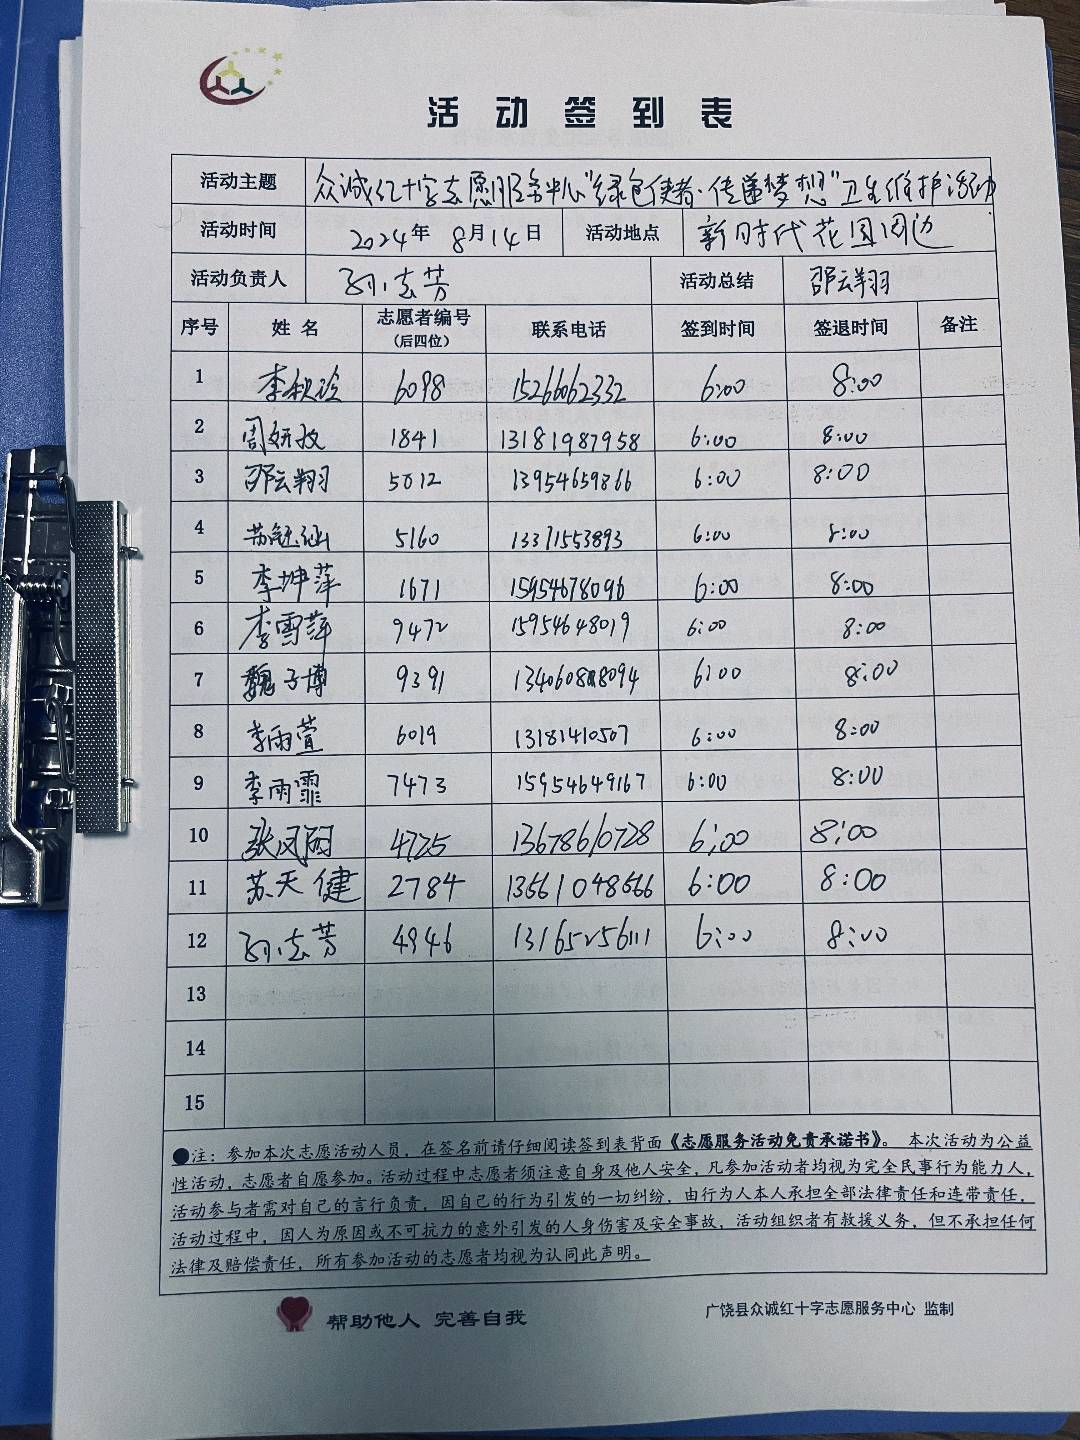 活动签到表
活动主题 众诚红十字志愿服务中心"绿色使者·传递梦想"卫生维护活动
活动时间 2024年 8月14日 活动地点 新时代花园周边
活动负责人 孙志芳 活动总结 邵云翔
序号 姓名 志愿者编号（后四位） 联系电话 签到时间 签退时间 备注
1 李秋玲 6098 15266062332 6:00 8:00
2 周妍孜 1841 13181987958 6:00 8:00
3 邵云翔 5012 13954659866 6:00 8:00
4 苏钰涵 5160 13371553893 6:00 8:00
5 李坤萍 1671 15954678096 6:00 8:00
6 李雪萍 9472 15954648019 6:00 8:00
7 魏子博 9391 6:00 8:00
8 李雨萱 6019 13181410507 6:00 8:00
9 李雨霏 7473 15954649167 6:00 8:00
10 张凤丽 4725 13678610728 6:00 8:00
11 苏天健 2784 13561048566 6:00 8:00
12 孙志芳 4946 13165256111 6:00 8:00
13
14
15
●注：参加本次志愿活动人员，在签名前请仔细阅读签到表背面《志愿服务活动免责承诺书》。本次活动为公益
性活动，志愿者自愿参加。活动过程中志愿者须注意自身及他人安全，凡参加活动者均视为完全民事行为能力人，
活动参与者需对自己的言行负责，因自己的行为引发的一切纠纷，由行为人本人承担全部法律责任和连带责任，
活动过程中，因人为原因或不可抗力的意外引发的人身伤害及安全事故，活动组织者有救援义务，但不承担任何
法律及赔偿责任，所有参加活动的志愿者均视为认同此声明。
帮助他人 完善自我
广饶县众诚红十字志愿服务中心 监制